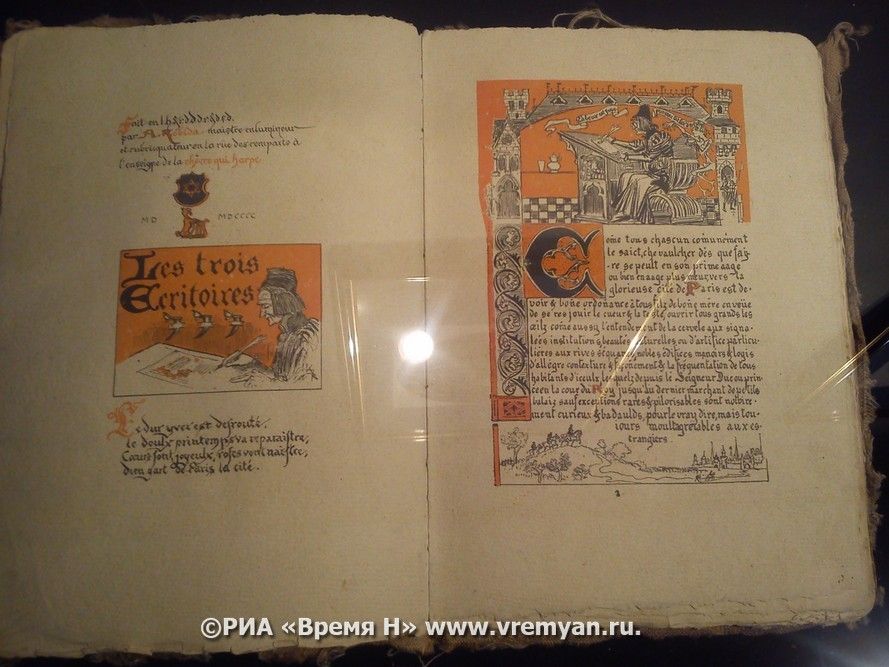 par A. Robida, maistre enlumineur
et rubriquateur en la rue des remparts à
l'enseigne de la chièvre qui harpe.
MD MDCCCC
Les trois
Ecritoires
Le dur yver est desrouté,
le doulx printemps va reparaistre,
Cœurs sont joyeulx, roses vont naistre,
Dieu gart de Paris la cité.
Cōme tous chascun comunément
le saict, chevaulcher dès que fay-
-re se peult en son prime aage
ou bien en aage plus meur, vers la
glorieuse cité de Paris est de-
voir & bōne ordonance à tous filz de bōne mère en veüe
de se resjouir le cueur & la teste, ouvrir tous grands les
œilz cōme aussy l'entendement de la cervele aux signa-
lées institutions, beautés naturelles ou d'artifice particu-
lières aux rives séquanes, nobles édifices, manoirs & logis
d'allègre contexture & façonement & la fréquentation de tous
habitants d'iceulx, lesquelz depuis le Seigneur Duc ou prin-
ce en la cour du Roy jusqu'au dernier marchant de petits
balais sauf exceptions rares & pilorisables sont notoire-
ment curieux & badaulds, pour le vray dire, mais tou-
jours moult agréables aux es-
trangiers.
2
©РИА «Время Н» www.vremyan.ru.